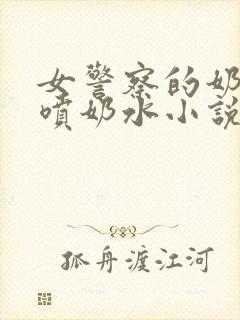 女警察的奶
噴奶水小説
孤舟渡江河